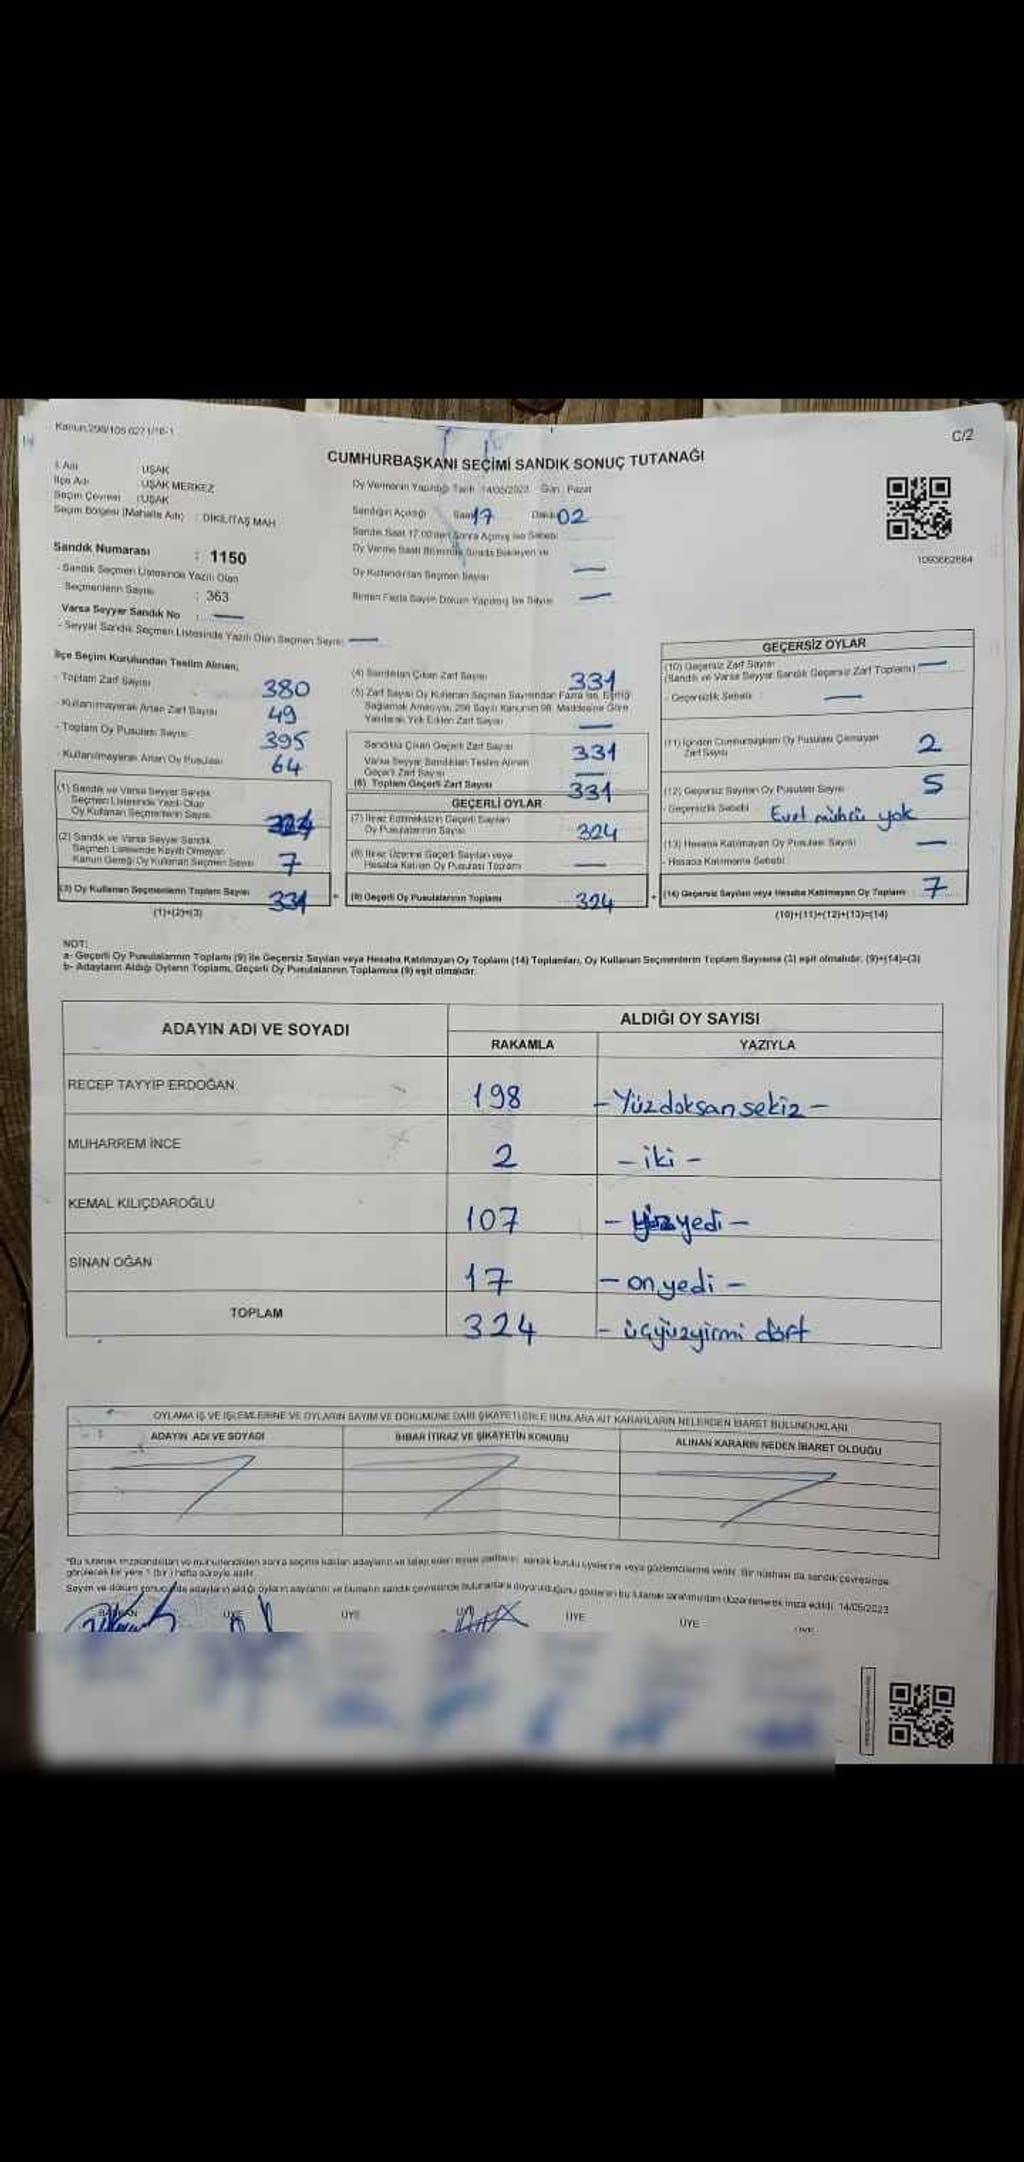 Kanun:298/105 627 1/16-1
C/2
CUMHURBAŞKANI SEÇİMİ SANDIK SONUÇ TUTANAĞI
İl Adı UŞAK
İlçe Adı UŞAK MERKEZ
Seçim Çevresi : UŞAK
Seçim Bölgesi (Mahalle Adı) : DİKİLİTAŞ MAH
Sandık Numarası : 1150
- Sandık Seçmen Listesinde Yazılı Olan
Seçmenlerin Sayısı : 363
Varsa Seyyar Sandık No : —
- Seyyar Sandık Seçmen Listesinde Yazılı Olan Seçmen Sayısı —
Oy Vermenin Yapıldığı Tarih : 14/05/2023 Gün : Pazar
Sandığın Açıldığı Saat 17 Dakika 02
Sandık Saat 17.00'den Sonra Açılmış İse Sebebi
Oy Verme Saati Bitiminde Sırada Bekleyen ve
Oy Kullandırılan Seçmen Sayısı —
Birden Fazla Sayım Döküm Yapılmış İse Sayısı —
1093662884
İlçe Seçim Kurulundan Teslim Alınan;
- Toplam Zarf Sayısı 380
- Kullanılmayarak Artan Zarf Sayısı 49
- Toplam Oy Pusulası Sayısı 395
- Kullanılmayarak Artan Oy Pusulası 64
(1) Sandık ve Varsa Seyyar Sandık
Seçmen Listesinde Yazılı Olup
Oy Kullanan Seçmenlerin Sayısı 324
(2) Sandık ve Varsa Seyyar Sandık
Seçmen Listesinde Kayıtlı Olmayan
Kanun Gereği Oy Kullanan Seçmen Sayısı 7
(3) Oy Kullanan Seçmenlerin Toplam Sayısı 331
(1)+(2)=(3)
(4) Sandıktan Çıkan Zarf Sayısı 331
(5) Zarf Sayısı Oy Kullanan Seçmen Sayısından Fazla İse, Eşitliği
Sağlamak Amacıyla, 298 Sayılı Kanunun 98. Maddesine Göre
Yakılarak Yok Edilen Zarf Sayısı —
Sandıkta Çıkan Geçerli Zarf Sayısı 331
Varsa Seyyar Sandıktan Teslim Alınan
Geçerli Zarf Sayısı —
(6) Toplam Geçerli Zarf Sayısı 331
GEÇERLİ OYLAR
(7) İtiraz Edilmeksizin Geçerli Sayılan
Oy Pusulalarının Sayısı 324
(8) İtiraz Üzerine Geçerli Sayılan veya
Hesaba Katılan Oy Pusulası Toplam —
(9) Geçerli Oy Pusulalarının Toplamı 324
GEÇERSİZ OYLAR
(10) Geçersiz Zarf Sayısı —
(Sandık ve Varsa Seyyar Sandık Geçersiz Zarf Toplamı)
- Geçersizlik Sebebi —
(11) İçinden Cumhurbaşkanı Oy Pusulası Çıkmayan
Zarf Sayısı 2
(12) Geçersiz Sayılan Oy Pusulası Sayısı 5
- Geçersizlik Sebebi Evet mührü yok
(13) Hesaba Katılmayan Oy Pusulası Sayısı —
- Hesaba Katılmama Sebebi
(14) Geçersiz Sayılan veya Hesaba Katılmayan Oy Toplamı 7
(10)+(11)+(12)+(13)=(14)
NOT:
a- Geçerli Oy Pusulalarının Toplamı (9) ile Geçersiz Sayılan veya Hesaba Katılmayan Oy Toplamı (14) Toplamları, Oy Kullanan Seçmenlerin Toplam Sayısına (3) eşit olmalıdır. (9)+(14)=(3)
b- Adayların Aldığı Oyların Toplamı, Geçerli Oy Pusulalarının Toplamına (9) eşit olmalıdır.
ADAYIN ADI VE SOYADI
ALDIĞI OY SAYISI
RAKAMLA YAZIYLA
RECEP TAYYİP ERDOĞAN 198 - Yüzdoksansekiz -
MUHARREM İNCE 2 - iki -
KEMAL KILIÇDAROĞLU 107 - yüzyedi -
SİNAN OĞAN 17 - onyedi -
TOPLAM 324 - üçyüzyirmi dört
OYLAMA İŞ VE İŞLEMLERİNE VE OYLARIN SAYIM VE DÖKÜMÜNE DAİR ŞİKAYETLERLE BUNLARA AİT KARARLARIN NELERDEN İBARET BULUNDUKLARI
ADAYIN ADI VE SOYADI İHBAR İTİRAZ VE ŞİKAYETİN KONUSU ALINAN KARARIN NEDEN İBARET OLDUĞU
"Bu tutanak imzalandıktan ve mühürlendikten sonra seçime katılan adayların ve talep eden siyasi partilerin sandık kurulu üyelerine veya gözlemcilerine verilir. Bir nüshası da sandık çevresinde
görülecek bir yere 1 (bir) hafta süreyle asılır.
Sayım ve döküm sonucunda adayların aldığı oyların sayılarını ve bunların sandık çevresinde bulunanlara duyurulduğunu gösteren bu tutanak tarafımızdan düzenlenerek imza edildi. 14/05/2023
BAŞKAN ÜYE ÜYE ÜYE ÜYE ÜYE ÜYE